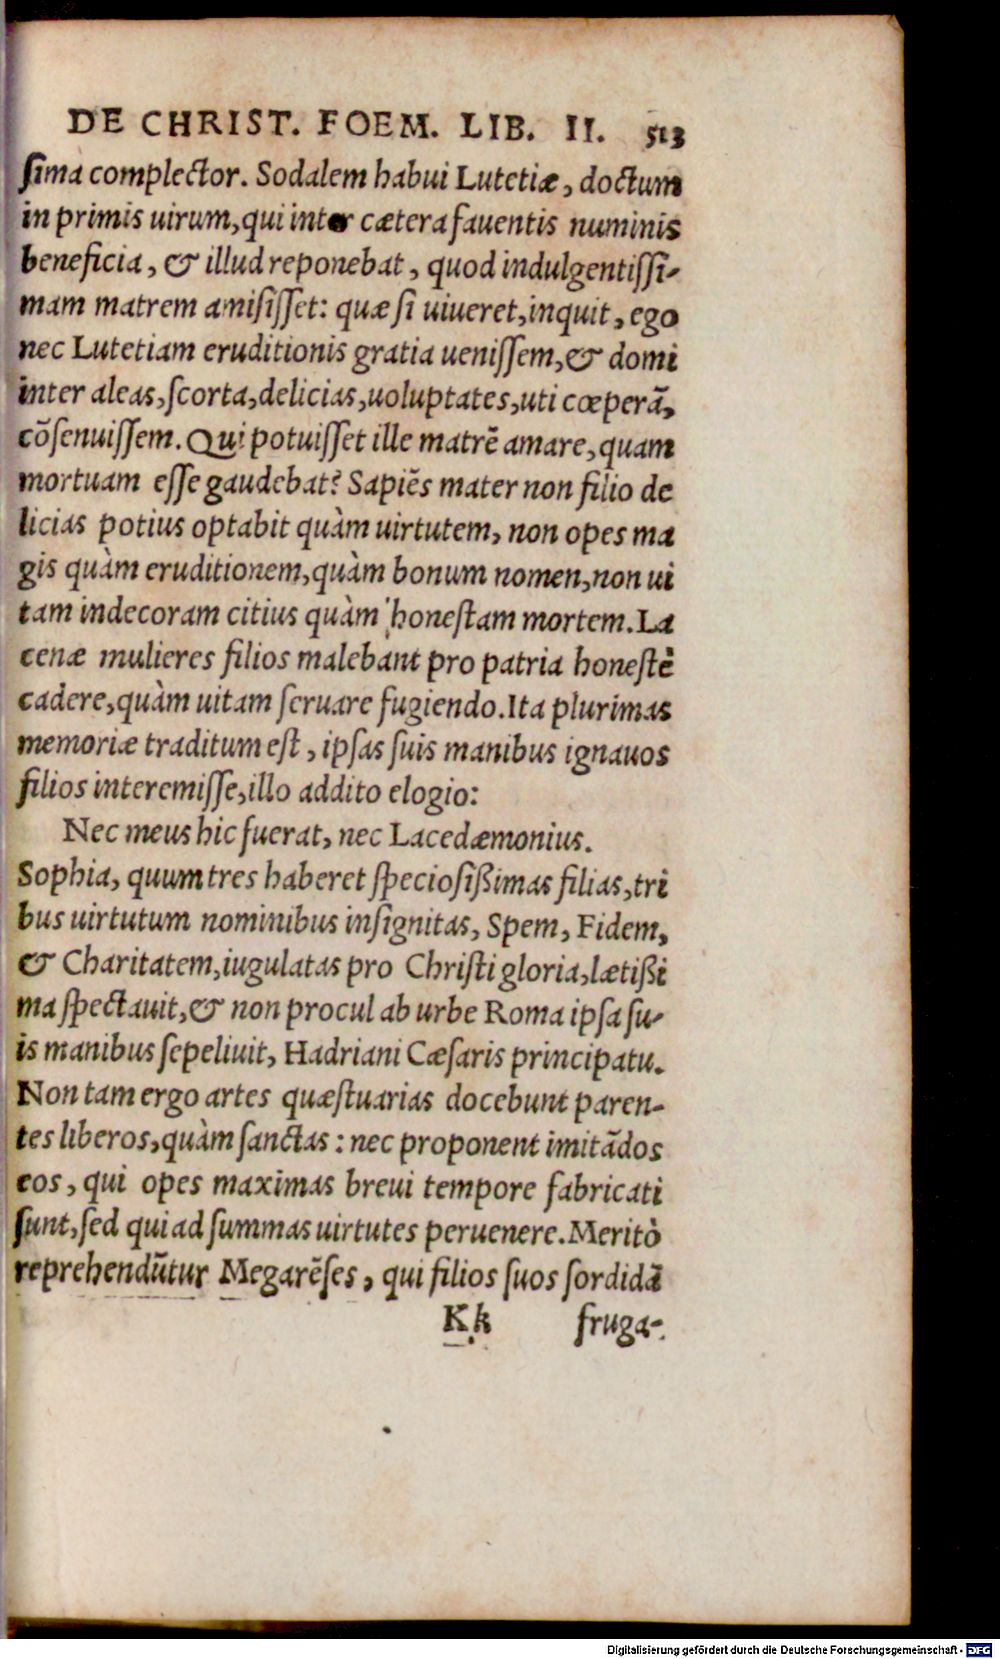 DE CHRIST. FOEM. LIB. II. 513
ſima complector. Sodalem habui Lutetiæ, doctum
in primis uirum, qui inter cætera fauentis numinis
beneficia, & illud reponebat, quod indulgentiſſi-
mam matrem amiſiſſet: quæ ſi uiueret, inquit, ego
nec Lutetiam eruditionis gratia ueniſſem, & domi
inter aleas, ſcorta, delicias, uoluptates, uti cœperã,
cõſenuiſſem. Qui potuiſſet ille matrẽ amare, quam
mortuam eſſe gaudebat? Sapiẽs mater non filio de
licias potius optabit quàm uirtutem, non opes ma
gis quàm eruditionem, quàm bonum nomen, non ui
tam indecoram citius quàm honeſtam mortem. La
cenæ mulieres filios malebant pro patria honeſtè
cadere, quàm uitam ſeruare fugiendo. Ita plurimas
memoriæ traditum eſt, ipſas ſuis manibus ignauos
filios interemiſſe, illo addito elogio:
Nec meus hic fuerat, nec Lacedæmonius.
Sophia, quum tres haberet ſpecioſißimas filias, tri
bus uirtutum nominibus inſignitas, Spem, Fidem,
& Charitatem, iugulatas pro Chriſti gloria, lætißi
ma ſpectauit, & non procul ab urbe Roma ipſa ſu-
is manibus ſepeliuit, Hadriani Cæſaris principatu.
Non tam ergo artes quæſtuarias docebunt paren-
tes liberos, quàm ſanctas: nec proponent imitãdos
eos, qui opes maximas breui tempore fabricati
ſunt, ſed qui ad ſummas uirtutes peruenere. Meritò
reprehendũtur Megarẽſes, qui filios ſuos ſordidã
Kk fruga-
Digitalisierung gefördert durch die Deutsche Forschungsgemeinschaft - DFG